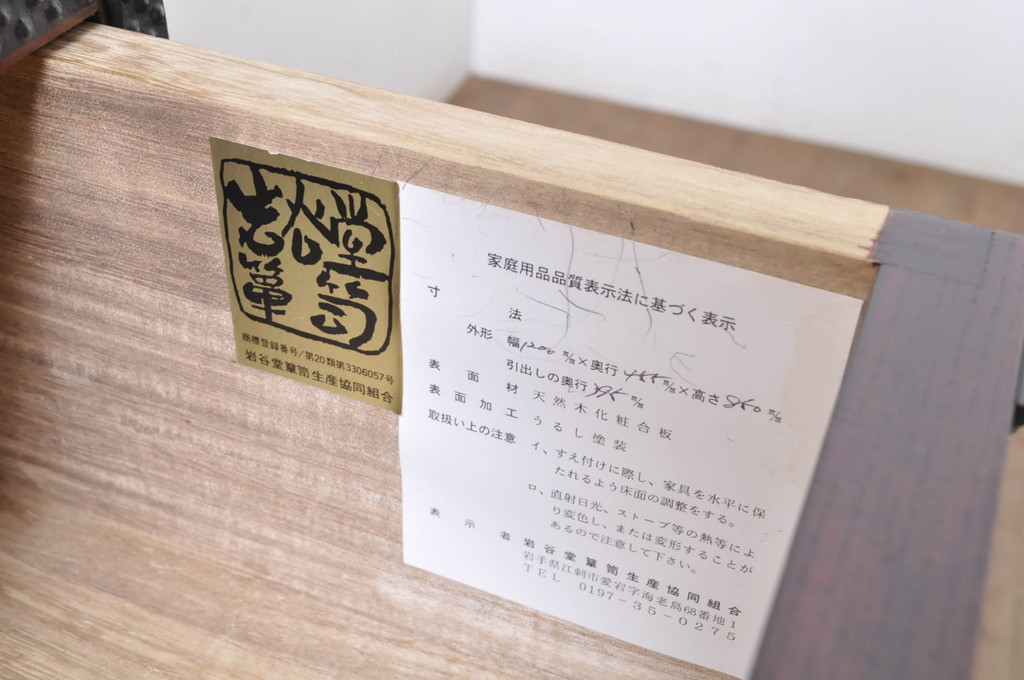 岩谷堂箪笥
商標登録番号/第20類第3306057号
岩谷堂箪笥生産協同組合
家庭用品品質表示法に基づく表示
寸法
外形 幅1200㎜×奥行455㎜×高さ860㎜
引出しの奥行395㎜
表面材 天然木化粧合板
表面加工 うるし塗装
取扱い上の注意 イ、すえ付けに際し、家具を水平に保
たれるよう床面の調整をする。
ロ、直射日光、ストーブ等の熱等によ
り変色し、または変形することが
あるので注意して下さい。
表示者 岩谷堂箪笥生産協同組合
岩手県江刺市愛宕字海老島68番地1
TEL 0197-35-0275